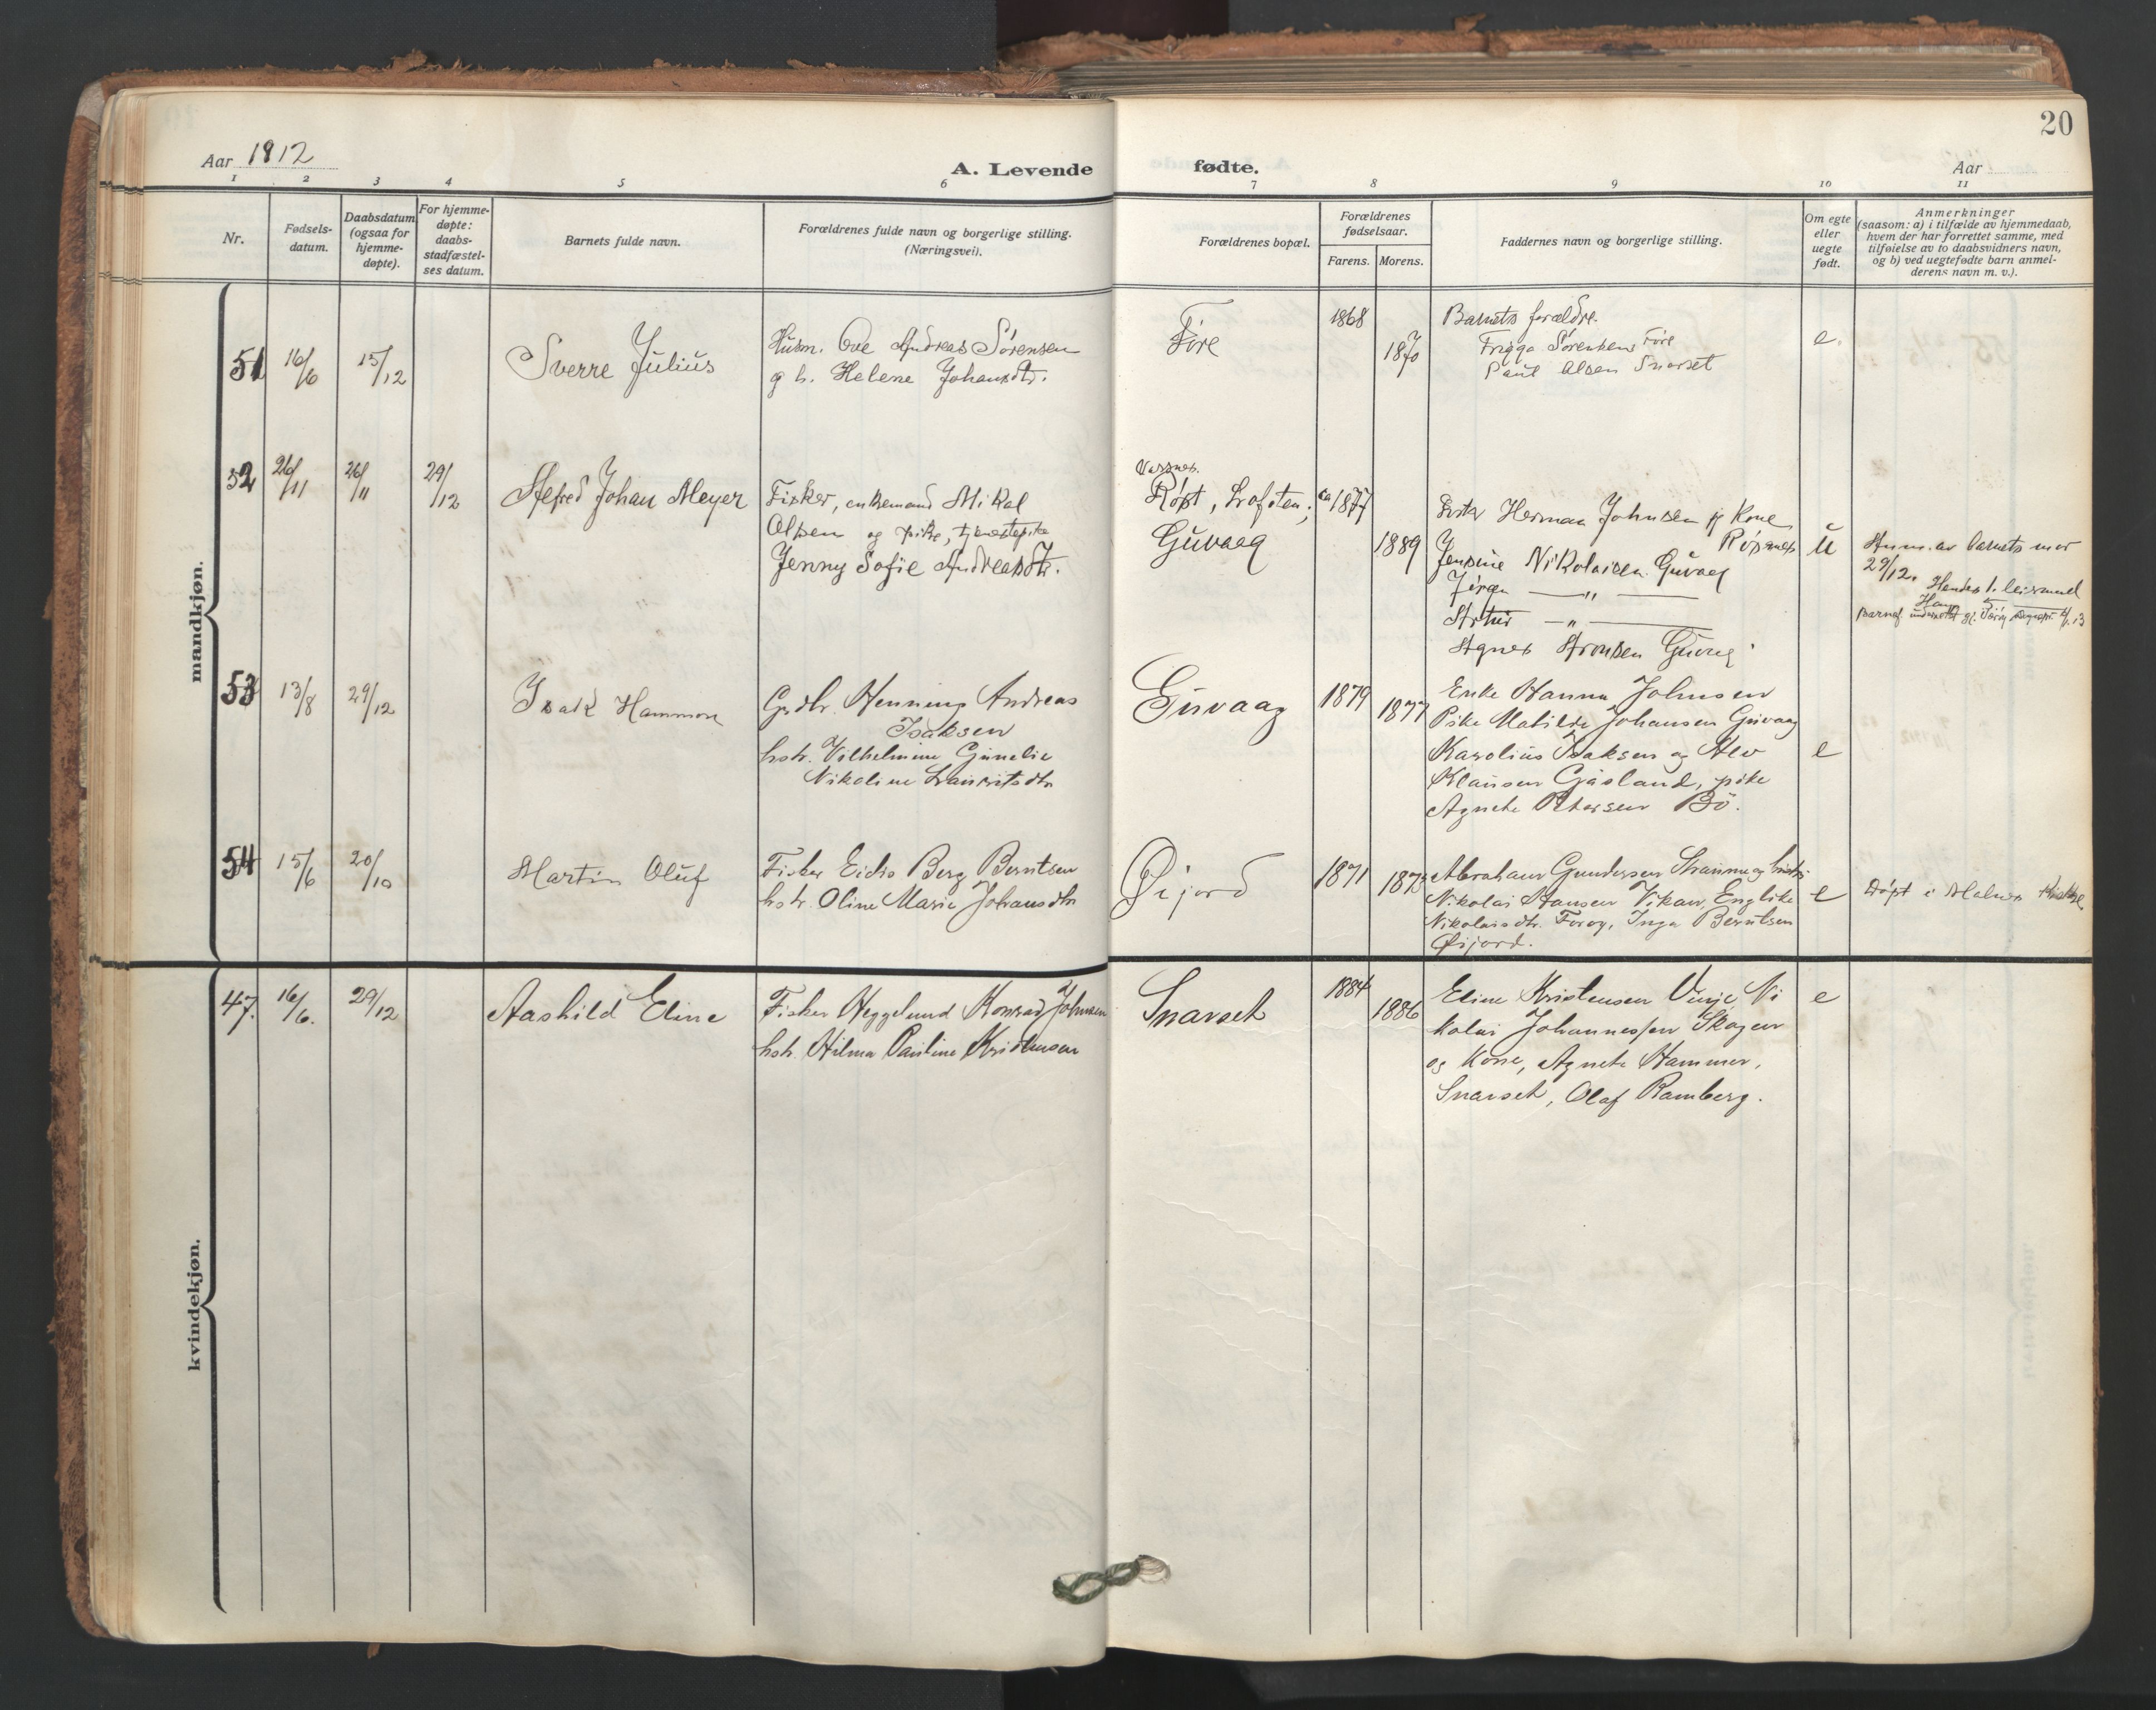 Aar 1912
A. Levende
1 2 3 4 5 6
Nr.
Fødsels-
datum.
Daabsdatum
(ogsaa for
hjemme-
døpte).
For hjemme-
døpte:
daabs-
stadfæstel-
ses datum.
Barnets fulde navn.
Forældrenes fulde navn og borgerlige stilling.
(Næringsvei).
mandkjøn.
51 16/6 15/12 Sverre Julius
Husm. Ove Andreas Sørensen
g h. Helene Johansdtr.
52 26/11 26/11 29/12 Alfred Johan Meyer
Fisker, enkemand Mikal
Olsen og pike, tjenestepike
Jenny Sofie Andreasdtr.
53 13/8 29/12 Isak Hammon
Grdbr. Henning Andreas
Isaksen
hstr. Vilhelmine Gunelie
Nikoline Lauritsdtr
54 15/6 20/10 Martin Oluf
Fisker Eidis Berg Berntsen
hstr. Oline Marie Johansdtr
kvindekjøn.
47. 16/6. 29/12 Aashild Eline
Fisker Heggelund Konrad Johnsen
hstr. Hilma Pauline Kristensen
20
fødte.
Aar
7 8 9 10 11
Forældrenes bopæl.
Forældrenes
fødselsaar.
Farens. Morens.
Faddernes navn og borgerlige stilling.
Om egte
eller
uegte
født.
Anmerkninger
(saasom: a) i tilfælde av hjemmedaab,
hvem der har forrettet samme, med
tilføielse av to daabsvidners navn,
og b) ved uegtefødte barn anmel-
derens navn m. v.).
Føre 1868 1870
Barnets forældre.
Frigga Sørensen, Føre
Paul Olsen Snarset
e.
Røst, Lofoten; ca 1877
Guvaag 1889
Herman Johnsen og Kone
Røsnes
Jensine Nikolaisen Guvaag
Jørgen — " —
Artur — " —
Agnes Aronsen Guvag
u
Anm. av barnets mor
29/12.
Guvaag 1879 1877
Enke Hanna Johnsen
Pike Matilde Johansen Guvaag
Karolius Isaksen og Alv
Klausen Gjåsland, pike
Agnete Petersen Bö.
e
Øijord 1871 1875
Abraham Gundersen Straume og hustr.
Nikolai Hansen Vikan, Englike
Nikolaisdtr. Forøy, Inga Berntsen
Øijord.
e
Døpt i Malnes Kirke
Snarset 1884 1886
Eline Kristensen Vinje Ni
kolai Johannessen Skagen
og Kone, Agnete Hammer,
Snarset, Olaf Ramberg.
e